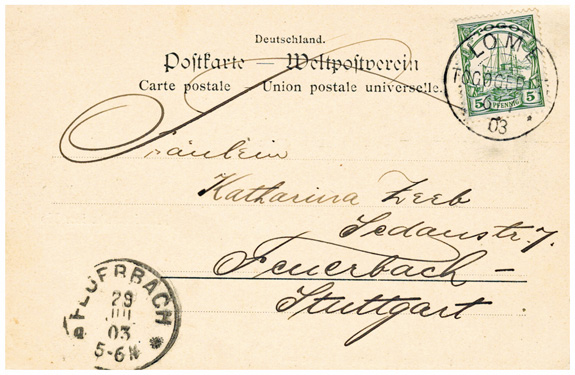 Deutschland.
Postkarte — Weltpostverein
Carte postale — Union postale universelle.
TOGO
5 PFENNIG 5
LOME
TOGOGEBIET
03
Fräulein
Katharina Zeeb
Sedanstr. 7.
Feuerbach –
Stuttgart
FEUERBACH
29
JUL
03
5-6N